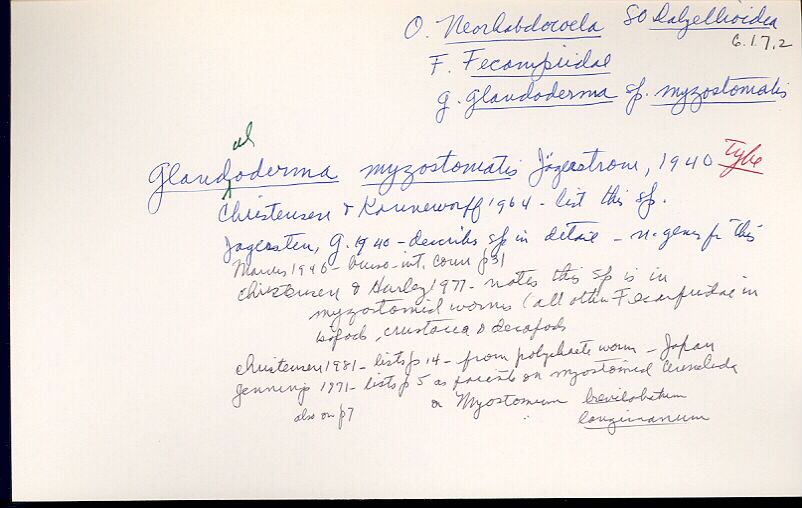 O. Neorhabdocoela SO Dalyellioidea
6.17.2
F. Fecampiidae
g. Glandoderma sp. myzostomatis
ul
Glandoderma myzostomatis Jägerstrom, 1940 Type
Christensen & Kanneworff 1964 - list this sp.
Jagersten, G. 1940 - describes sp in detail - n. genus for this
Marcus 1946 - burso-int. comm p31
Christensen & Hurley 1977 - notes this sp is in
myzostomid worms (all other Fecampiidae in
isopods, crustacea & decapods
Christensen 1981 - lists p 14 - from polychaete worm - Japan
Jennings 1971 - lists p 5 as parasite on myzostomid
on Myostomum brevilobatum
also on p7 longimanum